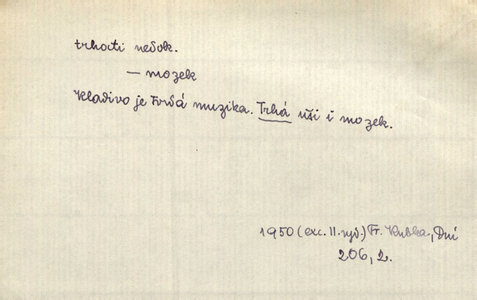 trhati nedok.
— mozek
Kladivo je tvrdá muzika. Trhá uši i mozek.
1950 (exc. II. vyd.) Fr. Kubka, Dní
206, 2.